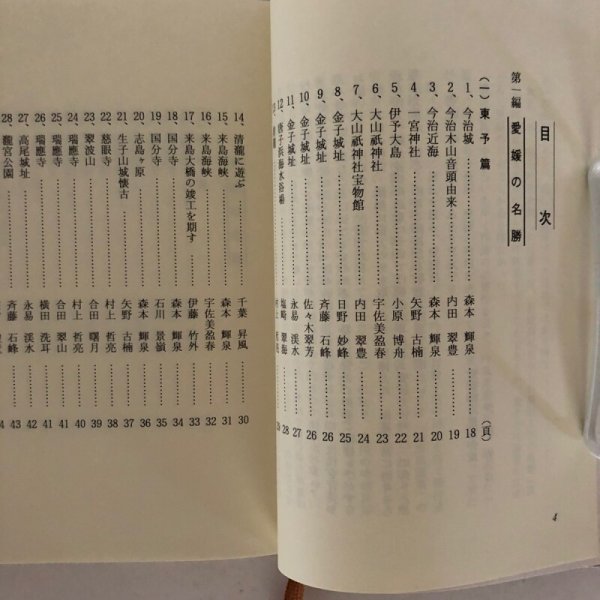 目次
第一編 愛媛の名勝
(一) 東予篇 (頁)
1、今治城 森本 輝泉 18
2、今治木山音頭由来 内田 翠豊 19
3、今治近海 森本 輝泉 20
4、一宮神社 矢野 古楠 21
5、伊予大島 小原 博舟 22
6、大山祇神社 宇佐美盈春 23
7、大山祇神社宝物館 内田 翠豊 24
8、金子城址 日野 妙峰 25
9、金子城址 斉藤 石峰 26
10、金子城址 佐々木翠芳 26
11、金子城址 永易 渓水 27
12、唐子浜海水浴場 塩崎 翠海 28
14、清瀧に遊ぶ 千葉 昇風 30
15、来島海峡 森本 輝泉 31
16、来島海峡 宇佐美盈春 32
17、来島大橋の竣工を期す 伊藤 竹外 33
18、国分寺 森本 輝泉 34
19、国分寺 石川 景嶺 35
20、志島ヶ原 森本 輝泉 36
21、生子山城懐古 矢野 古楠 37
22、慈眼寺 村上 哲亮 38
23、翠波山 合田 曙月 39
24、瑞應寺 村上 哲亮 40
25、瑞應寺 合田 翠山 41
26、瑞應寺 横田 洗耳 41
27、高尾城址 永易 渓水 42
28、龍宮公園 斉藤 石峰 43
4